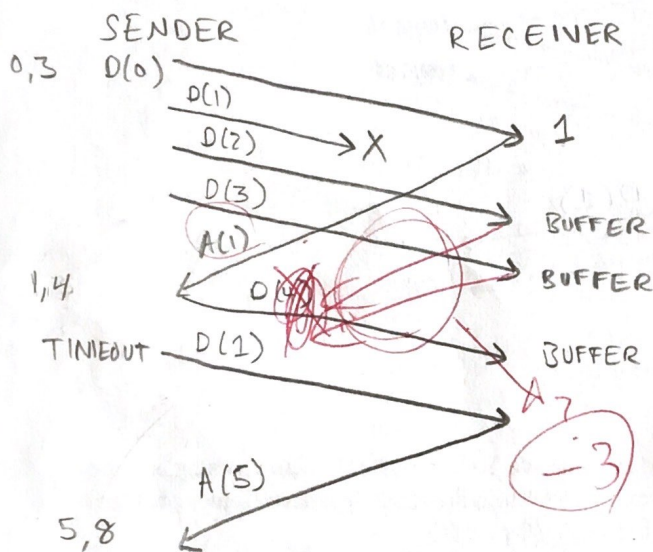 SENDER
RECEIVER
0,3 D(0)
D(1)
X
1
D(2)
D(3)
BUFFER
A(1)
BUFFER
1,4
BUFFER
TIMEOUT D(1)
-3
A(5)
5,8